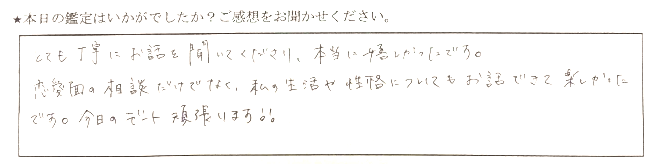 ★本日の鑑定はいかがでしたか？ご感想をお聞かせください。
とても丁寧にお話を聞いてくださり、本当に嬉しかったです。
恋愛面の相談だけでなく、私の生活や性格についてもお話できて楽しかった
です。今日のデート頑張ります!!